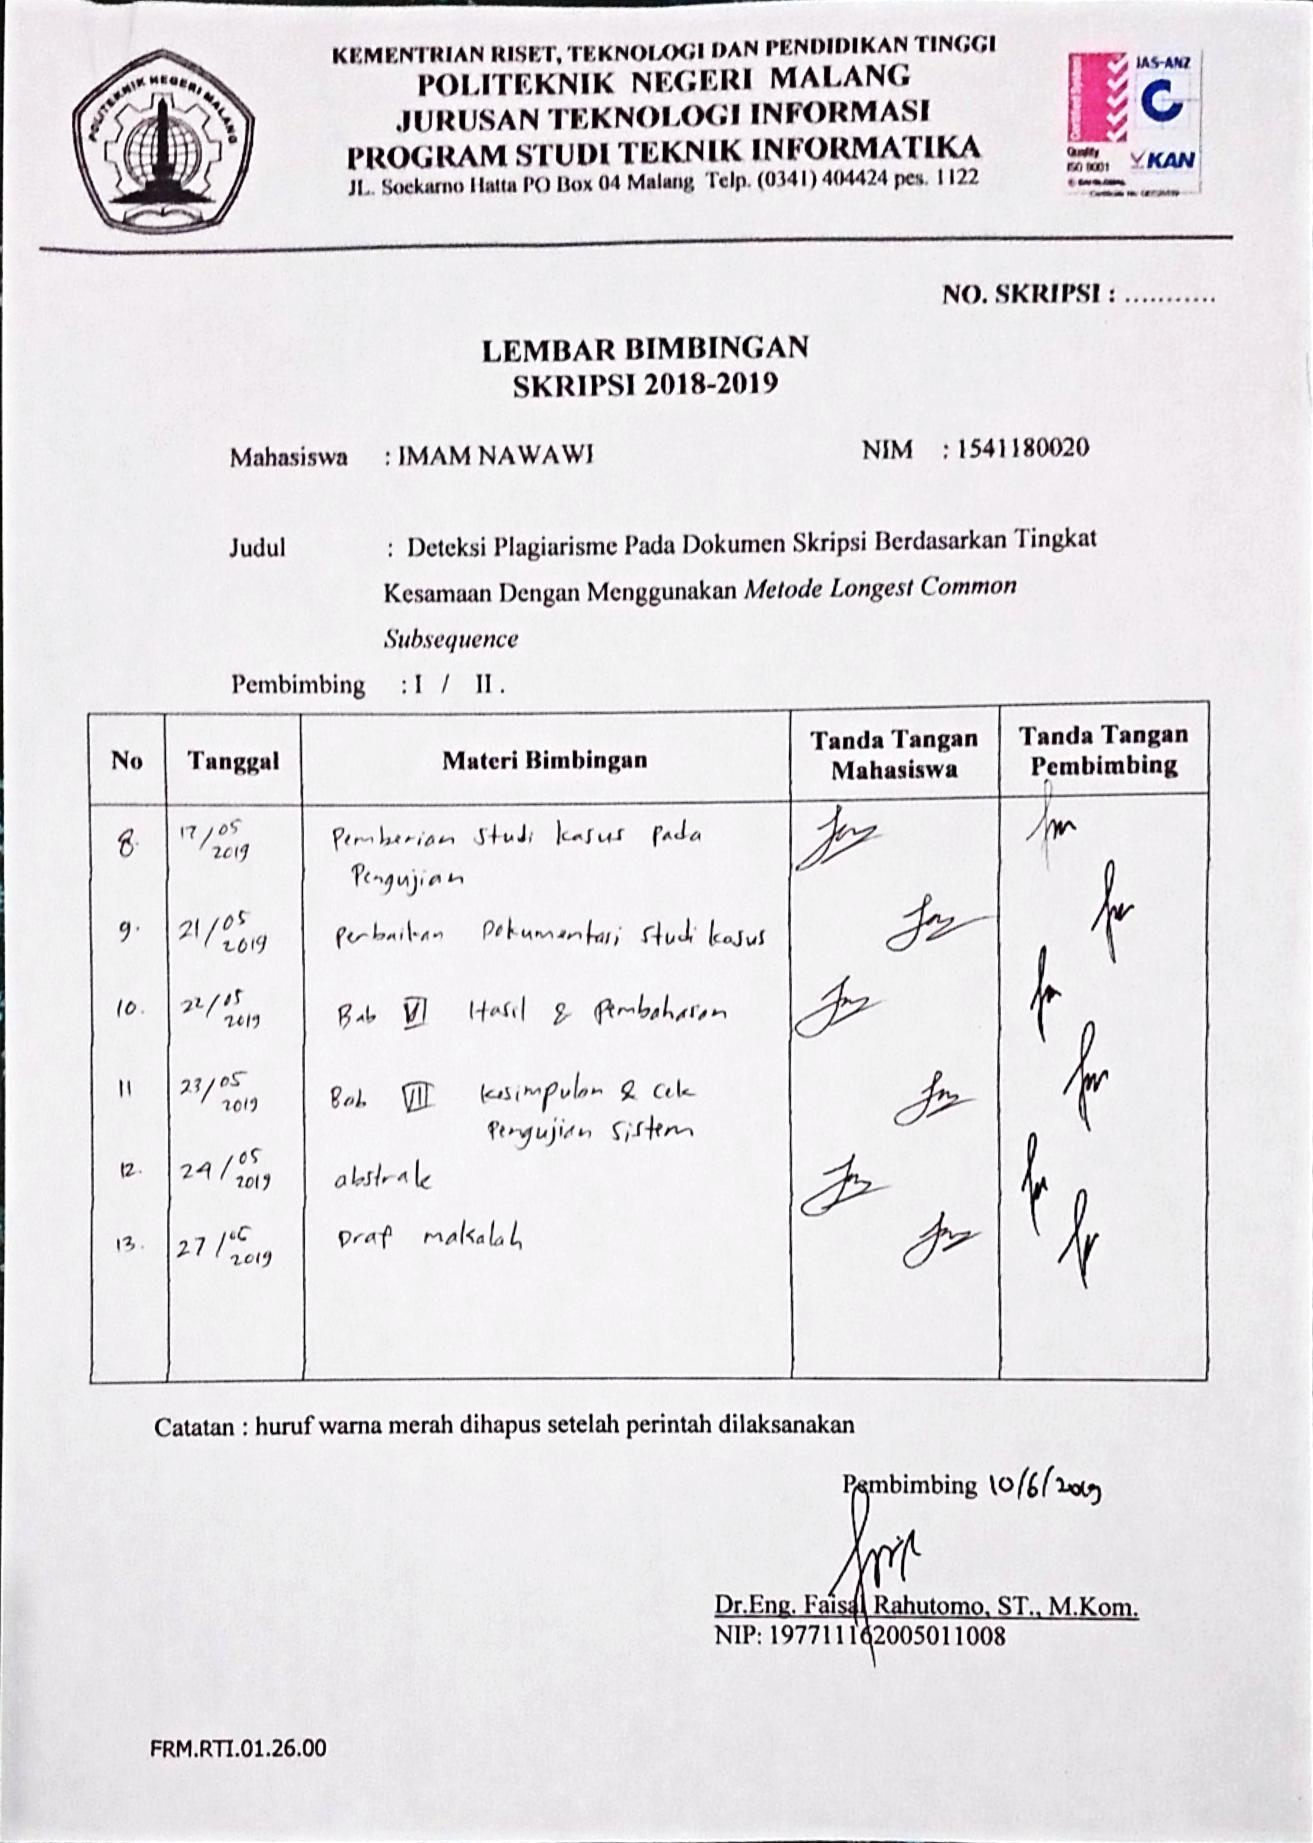 POLITEKNIK NEGERI MALANG
KEMENTRIAN RISET, TEKNOLOGI DAN PENDIDIKAN TINGGI
POLITEKNIK NEGERI MALANG
JURUSAN TEKNOLOGI INFORMASI
PROGRAM STUDI TEKNIK INFORMATIKA
JL. Soekarno Hatta PO Box 04 Malang Telp. (0341) 404424 pes. 1122
Certified System
JAS-ANZ
Quality
ISO 9001
KAN
NO. SKRIPSI : ...........
LEMBAR BIMBINGAN
SKRIPSI 2018-2019
Mahasiswa : IMAM NAWAWI NIM : 1541180020
Judul : Deteksi Plagiarisme Pada Dokumen Skripsi Berdasarkan Tingkat
Kesamaan Dengan Menggunakan Metode Longest Common
Subsequence
Pembimbing : I / II .
No Tanggal Materi Bimbingan Tanda Tangan Mahasiswa Tanda Tangan Pembimbing
8. 17/05 2019 Pemberian studi kasus pada
Pengujian
9. 21/05 2019 Perbaikan Dokumentasi studi kasus
10. 22/05 2019 Bab VI Hasil & Pembahasan
11 23/05 2019 Bab VII Kesimpulan & Cek
Pengujian Sistem
12. 24/05 2019 abstrak
13. 27/05 2019 Draf makalah
Catatan : huruf warna merah dihapus setelah perintah dilaksanakan
Pembimbing 10/6/2019
Dr.Eng. Faisal Rahutomo, ST., M.Kom.
NIP: 197711162005011008
FRM.RTI.01.26.00